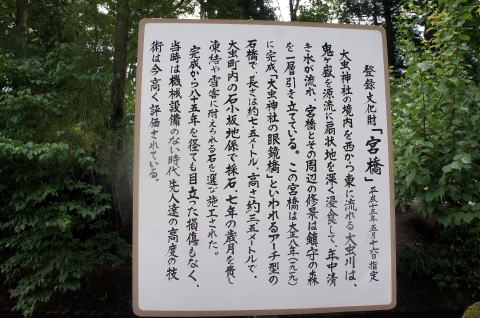 登録文化財「宮橋」平成十三年五月十六日指定
大虫神社の境内を西から東に流れる大虫川は、
鬼ヶ嶽を源流に扇状地を深く浸食して、年中清
き水が流れ、宮橋とその周辺の修景は鎮守の森
を一層引き立てている。この宮橋は大正八年(一九一九)
に完成「大虫神社の眼鏡橋」といわれるアーチ型の
石橋で、長さは約七・五メートル、高さ約三・五メートルで、
大虫町内の石小坂地係で採石、七年の歳月を費し
凍結や雪害に耐えられる石を選び施工された。
完成から八十五年を径ても目立った損傷もなく、
当時は機械設備のない時代、先人達の高度の技
術は今高く評価されている。